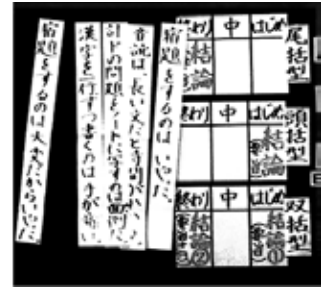 尾括型
はじめ
中
終わり
結論
頭括型
はじめ
中
終わり
結論
双括型
はじめ
中
終わり
結論①
結論②
宿題をするのはいやだ。
音読は、長い文だと時間が
計ドの問題をノートに写すのは面倒。
漢字を一行ずつ書くのは手が痛い。
宿題をするのは大変だから、いやだ。